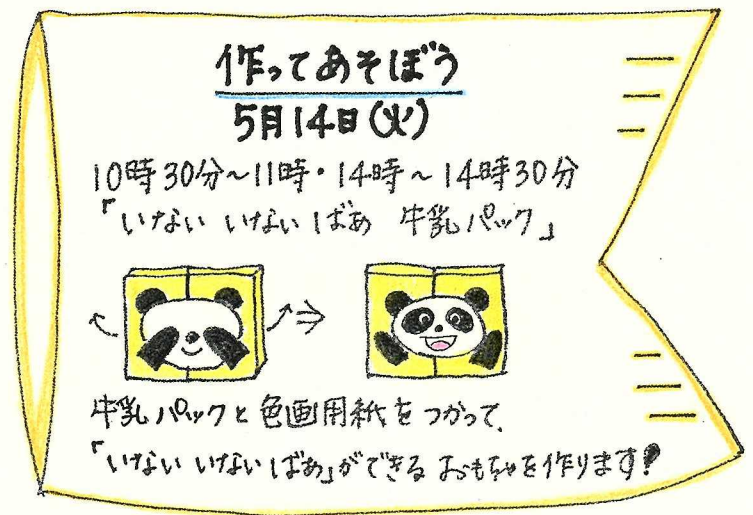 作ってあそぼう
5月14日(火)
10時30分~11時・14時~14時30分
「いない いない ばあ 牛乳パック」
牛乳パックと色画用紙をつかって、
「いない いない ばあ」ができる おもちゃを作ります!